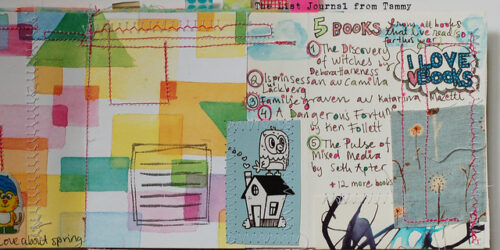 The List Journal from Tammy
5 BOOKS
from all books
that I've read so
far this year
① The Discovery
of Witches by
Deborah Harkness
② Isprinsessan av Camilla
Läckberg
③ Familjegraven av Katarina Mazetti
④ A Dangerous Fortune
by Ken Follett
⑤ The Pulse of
Mixed Media
by Seth Apter
+ 12 more books
I LOVE
BOOKS
love about spring